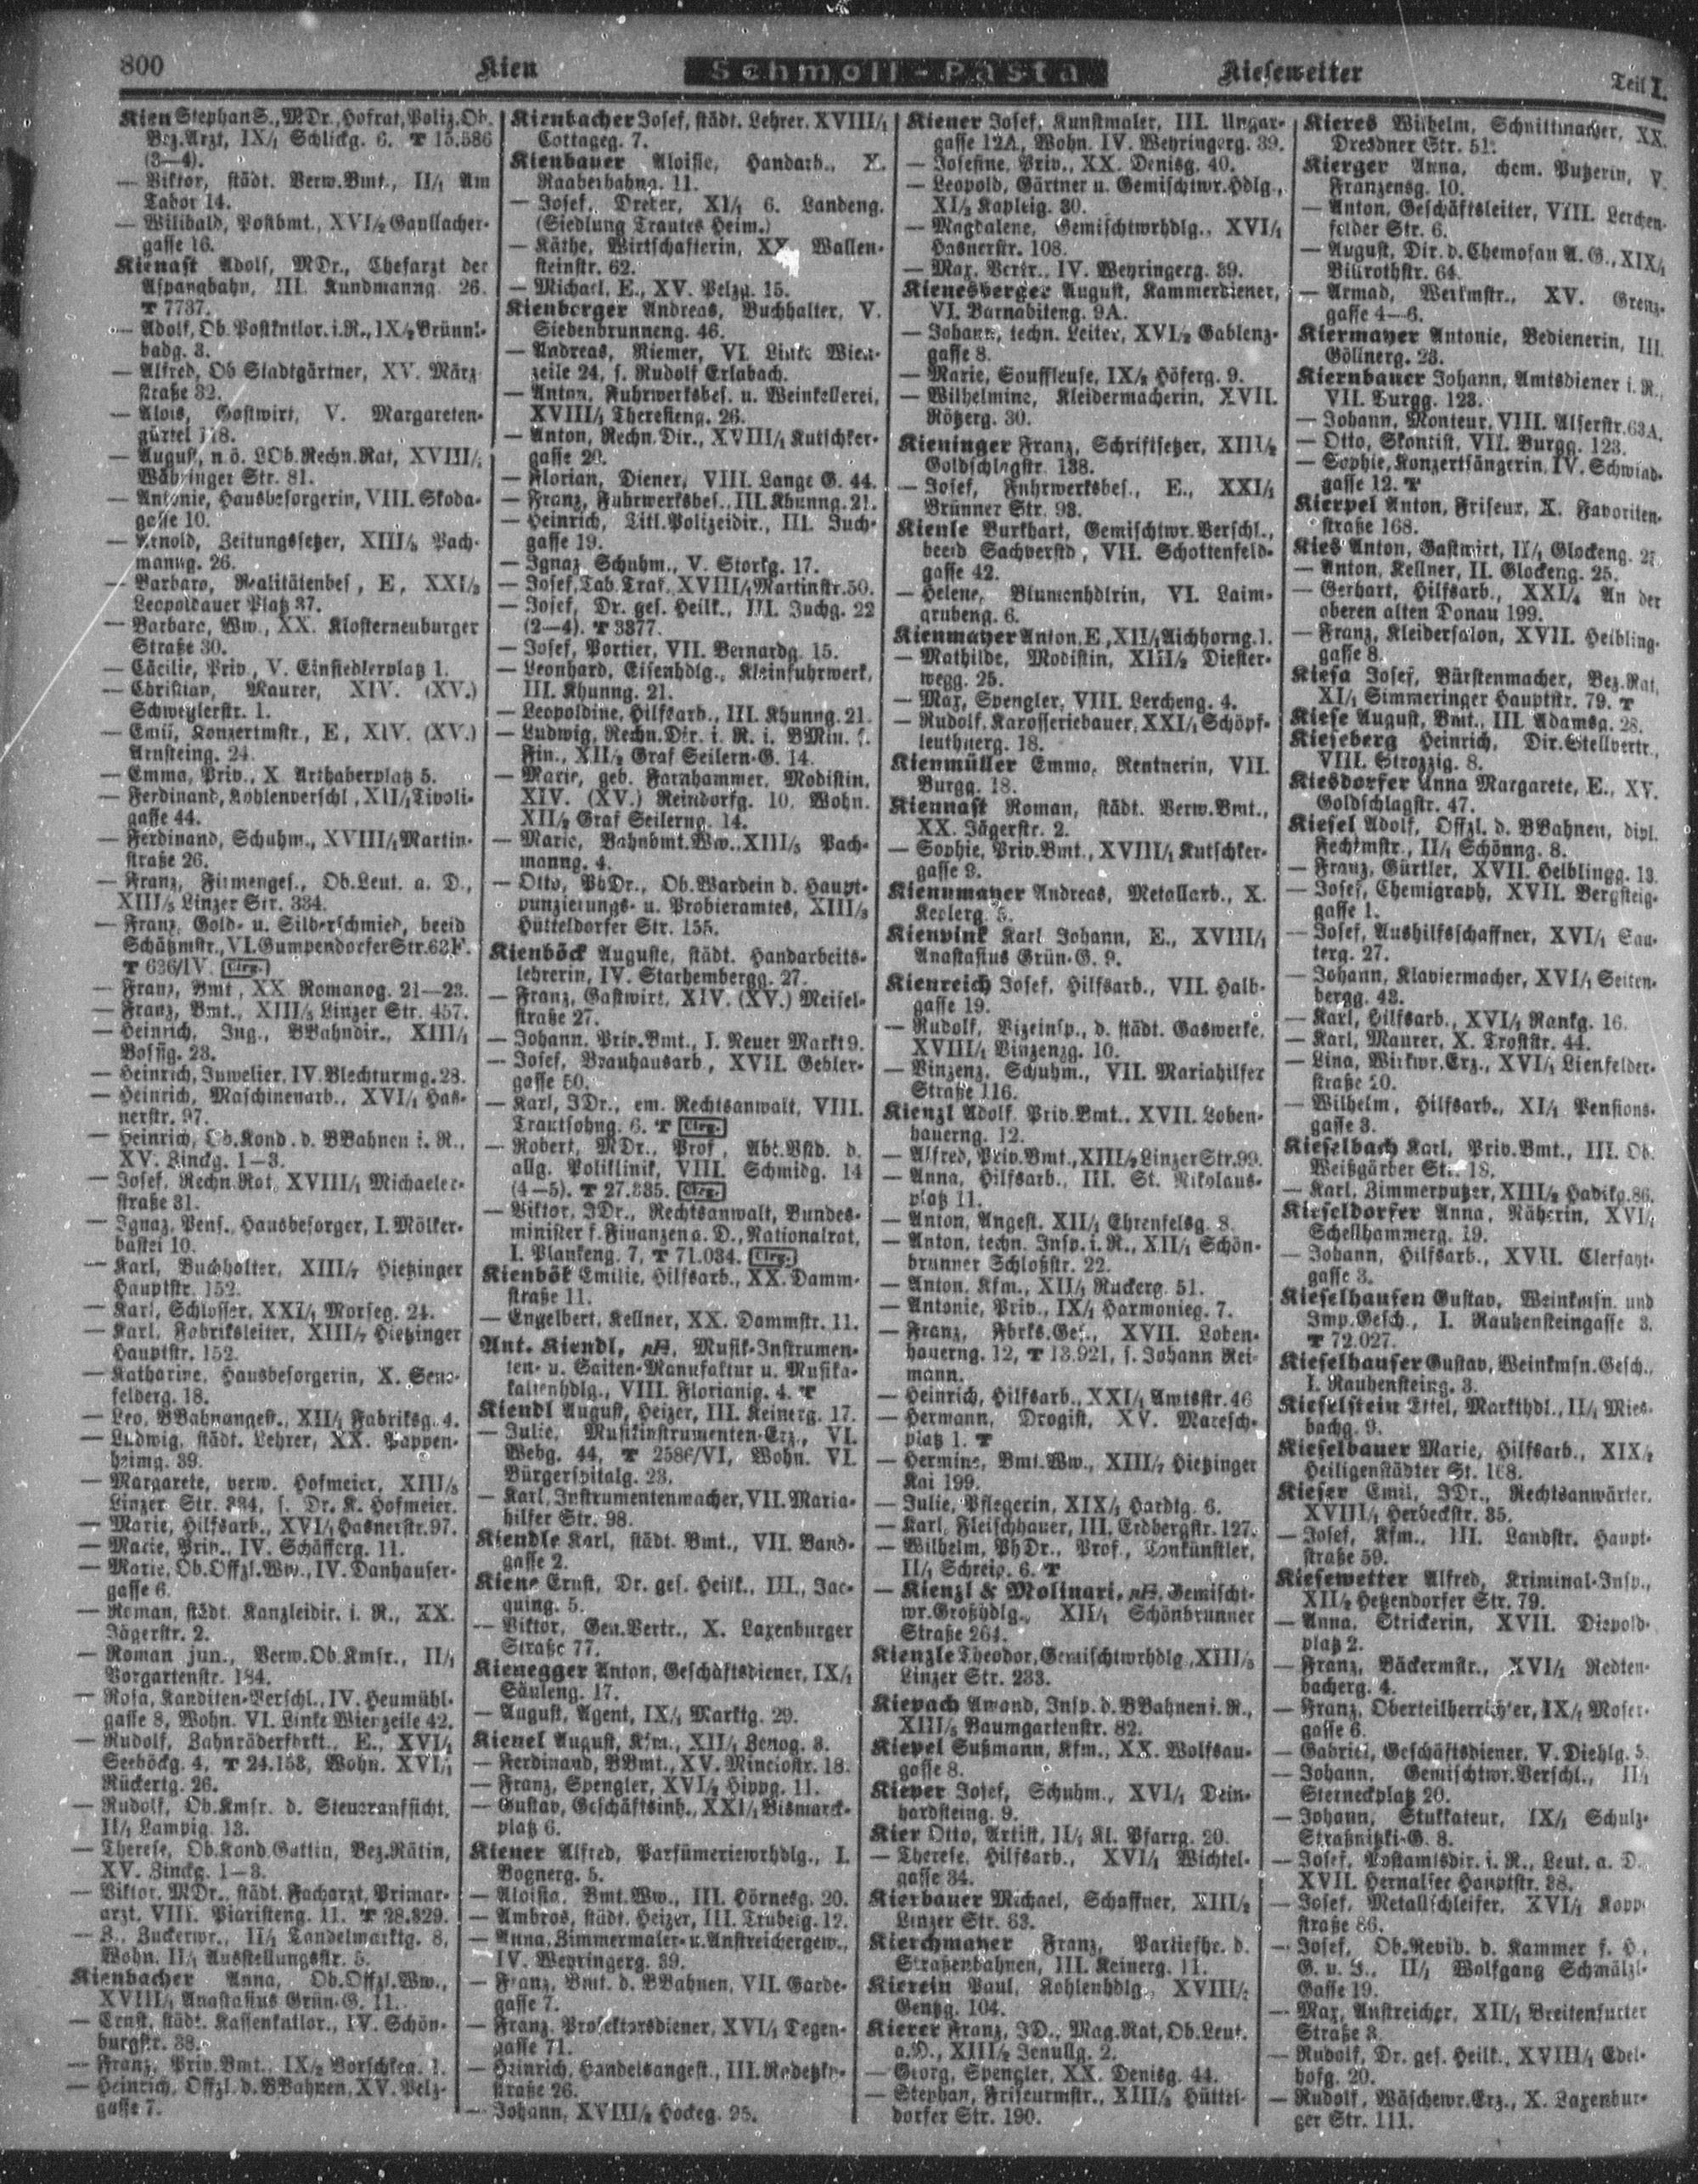 800
Kien
Schmoll-Pasta
Kiesewetter
Teil I.
Kien Stephan S., MDr., Hofrat, Poliz.Ob.
Bez.Arzt, IX/1 Schlickg. 6. T 15.586
(3—4).
— Viktor, städt. Verw.Bmt., II/1 Am
Tabor 14.
— Willbald, Postbmt., XVI/2 Gaullacher-
gasse 16.
Kienast Adolf, MDr., Chefarzt der
Aspangbahn, III. Kundmanng. 26.
T 7737.
— Adolf, Ob.Postkntlor. i. R., IX/2 Brünnl-
badg. 3.
— Alfred, Ob Stadtgärtner, XV. März-
straße 32.
— Alois, Gastwirt, V. Margareten-
gürtel 118.
— August, n.ö. LOb.Rechn.Rat, XVIII/1
Währinger Str. 81.
— Antonie, Hausbesorgerin, VIII. Skoda-
gasse 10.
— Arnold, Zeitungssetzer, XIII/5 Pach-
manng. 26.
— Barbara, Realitätenbes., E, XXI/3
Leopoldauer Platz 37.
— Barbara, Ww., XX. Klosterneuburger
Straße 30.
— Cäcilie, Priv., V. Einsiedlerplatz 1.
— Christian, Maurer, XIV. (XV.)
Schweglerstr. 1.
— Emil, Konzertmstr., E, XIV. (XV.)
Arnsteing. 24.
— Emma, Priv., X. Arthaberplatz 5.
— Ferdinand, Kohlenverschl., XII/1 Tivoli-
gasse 44.
— Ferdinand, Schuhm., XVIII/1 Martin-
straße 26.
— Franz, Firmenges., Ob.Leut. a. D.,
XIII/5 Linzer Str. 334.
— Franz, Gold- u. Silberschmied, beeid
Schätzmstr., VI. Gumpendorfer Str. 63F.
T 636/IV. Clrg.
— Franz, Bmt., XX. Romanog. 21—23.
— Franz, Bmt., XIII/5 Linzer Str. 457.
— Heinrich, Ing., BBahndir., XIII/1
Bossig. 23.
— Heinrich, Juwelier, IV. Blechturmg. 28.
— Heinrich, Maschinenarb., XVI/1 Has-
nerstr. 97.
— Heinrich, Ob.Kond. d. BBahnen i. R.,
XV. Zinckg. 1—3.
— Josef, Rechn.Rat, XVIII/1 Michaeler-
straße 31.
— Ignaz, Pens., Hausbesorger, I. Mölker-
bastei 10.
— Karl, Buchhalter, XIII/7 Hietzinger
Hauptstr. 152.
— Karl, Schlosser, XXI/1 Morseg. 24.
— Karl, Fabriksleiter, XIII/7 Hietzinger
Hauptstr. 152.
— Katharine, Hausbesorgerin, X. Sene-
felderg. 18.
— Leo, BBahnangest., XII/1 Fabriksg. 4.
— Ludwig, städt. Lehrer, XX. Pappen-
heimg. 39.
— Margarete, verw. Hofmeier, XIII/5
Linzer Str. 334, s. Dr. K. Hofmeier.
— Marie, Hilfsarb., XVI/1 Hasnerstr. 97.
— Marie, Priv., IV. Schäfferg. 11.
— Marie, Ob.Offzl.Ww., IV. Danhauser-
gasse 6.
— Roman, städt. Kanzleidir. i. R., XX.
Jägerstr. 2.
— Roman jun., Verw.Ob.Kmsr., II/1
Vorgartenstr. 184.
— Rosa, Kanditen-Verschl., IV. Heumühl-
gasse 8, Wohn. VI. Linke Wienzeile 42.
— Rudolf, Zahnräderfbrkt., E., XVI/1
Seeböckg. 4, T 24.153, Wohn. XVI/1
Rückertg. 26.
— Rudolf, Ob.Kmsr. d. Steueraufsicht,
II/1 Lampig. 13.
— Therese, Ob.Kond.Gattin, Bez.Rätin,
XV. Zinckg. 1—3.
— Viktor, MDr., städt. Facharzt, Primar-
arzt, VIII. Piaristeng. 11. T 28.329.
— Z., Zuckerwr., II/1 Tandelmarktg. 8,
Wohn. II/1 Ausstellungsstr. 5.
Kienbacher Anna, Ob.Offzl.Ww.,
XVIII/1 Anastasius Grün-G. 11.
— Ernst, städt. Kassenkntlor., IV. Schön-
burgstr. 38.
— Franz, Priv.Bmt., IX/2 Borschkeg. 1.
— Heinrich, Offzl. d. BBahnen, XV. Pelz-
gasse 7.
Kienbacher Josef, städt. Lehrer, XVIII/1
Cottageg. 7.
Kienbauer Aloisie, Handarb., X.
Raaberbahng. 11.
— Josef, Dreher, XI/1 6. Landeng.
(Siedlung Trautes Heim.)
— Käthe, Wirtschafterin, XX. Wallen-
steinstr. 62.
— Michael, E., XV. Pelzg. 15.
Kienberger Andreas, Buchhalter, V.
Siebenbrunneng. 46.
— Andreas, Riemer, VI. Linke Wien-
zeile 24, s. Rudolf Erlabach.
— Anton, Fuhrwerksbes. u. Weinkellerei,
XVIII/1 Theresieng. 26.
— Anton, Rechn.Dir., XVIII/1 Kutschker-
gasse 20.
— Florian, Diener, VIII. Lange G. 44.
— Franz, Fuhrwerksbes., III. Khunng. 21.
— Heinrich, Titl.Polizeidir., III. Juch-
gasse 19.
— Ignaz, Schuhm., V. Storkg. 17.
— Josef, Tab.Traf., XVIII/1 Martinstr. 50.
— Josef, Dr. ges. Heilk., III. Juchg. 22
(2—4). T 3377.
— Josef, Portier, VII. Bernardg. 15.
— Leonhard, Eisenhdlg., Kleinfuhrwerk,
III. Khunng. 21.
— Leopoldine, Hilfsarb., III. Khunng. 21.
— Ludwig, Rechn.Dir. i. R. i. BMin. f.
Fin., XII/2 Graf Seilern-G. 14.
— Marie, geb. Farnhammer, Modistin,
XIV. (XV.) Reindorfg. 10, Wohn.
XII/2 Graf Seilerng. 14.
— Marie, Bahnbmt.Ww., XIII/5 Pach-
manng. 4.
— Otto, PhDr., Ob.Wardein d. Haupt-
punzierungs- u. Probieramtes, XIII/3
Hütteldorfer Str. 155.
Kienböck Auguste, städt. Handarbeits-
lehrerin, IV. Starhembergg. 27.
— Franz, Gastwirt, XIV. (XV.) Meisel-
straße 27.
— Johann, Priv.Bmt., I. Neuer Markt 9.
— Josef, Brauhausarb., XVII. Gebler-
gasse 50.
— Karl, JDr., em. Rechtsanwalt, VIII.
Trautsohng. 6. T Clrg.
— Robert, MDr., Prof., Abt.Vstd. d.
allg. Poliklinik, VIII. Schmidg. 14
(4—5). T 27.335. Clrg.
— Viktor, JDr., Rechtsanwalt, Bundes-
minister f. Finanzen a. D., Nationalrat,
I. Plankeng. 7, T 71.034. Clrg.
Kienbök Emilie, Hilfsarb., XX. Damm-
straße 11.
— Engelbert, Kellner, XX. Dammstr. 11.
Ant. Kiendl, Musik-Instrumen-
ten- u. Saiten-Manufaktur u. Musika-
lienhdlg., VIII. Florianig. 4. T
Kiendl August, Heizer, III. Keinerg. 17.
— Julie, Musikinstrumenten-Erz., VI.
Webg. 44, T 2586/VI, Wohn. VI.
Bürgerspitalg. 23.
— Karl, Instrumentenmacher, VII. Maria-
hilfer Str. 98.
Kiendle Karl, städt. Bmt., VII. Band-
gasse 2.
Kiene Ernst, Dr. ges. Heilk., III., Jac-
quing. 5.
— Viktor, Gen.Vertr., X. Laxenburger
Straße 77.
Kienegger Anton, Geschäftsdiener, IX/1
Säuleng. 17.
— August, Agent, IX/1 Marktg. 29.
Kienel August, Kfm., XII/1 Zenog. 8.
— Ferdinand, BBmt., XV. Minciostr. 18.
— Franz, Spengler, XVI/2 Hippg. 11.
— Gustav, Geschäftsinh., XXI/1 Bismarck-
platz 6.
Kiener Alfred, Parfümeriewrhdlg., I.
Bognerg. 5.
— Aloisia, Bmt.Ww., III. Hörnesg. 20.
— Ambros, städt. Heizer, III. Trubelg. 12.
— Anna, Zimmermaler- u. Anstreichergew.,
IV. Weyringerg. 39.
— Franz, Bmt. d. BBahnen, VII. Garde-
gasse 7.
— Franz, Prosektorsdiener, XVI/1 Degen-
gasse 71.
— Heinrich, Handelsangest., III. Radetzky-
straße 26.
— Johann, XVIII/2 Hockeg. 95.
Kiener Josef, Kunstmaler, III. Ungar-
gasse 12A, Wohn. IV. Weyringerg. 39.
— Josefine, Priv., XX. Denisg. 40.
— Leopold, Gärtner u. Gemischtwr.Hdlg.,
XI/2 Kapleig. 30.
— Magdalene, Gemischtwrhdlg., XVI/1
Hasnerstr. 108.
— Max, Vertr., IV. Weyringerg. 39.
Kienesberger August, Kammerdiener,
VI. Barnabiteng. 9A.
— Johann, techn. Leiter, XVI/2 Gablenz-
gasse 8.
— Marie, Souffleuse, IX/2 Höferg. 9.
— Wilhelmine, Kleidermacherin, XVII.
Rötzerg. 30.
Kieninger Franz, Schriftsetzer, XIII/2
Goldschlagstr. 138.
— Josef, Fuhrwerksbes., E., XXI/1
Brünner Str. 93.
Kienle Burkhart, Gemischtwr.Verschl.,
beeid Sachverstd., VII. Schottenfeld-
gasse 42.
— Helene, Blumenhdlrin, VI. Laim-
grubeng. 6.
Kienmayer Anton, E., XII/1 Aichhorng. 1.
— Mathilde, Modistin, XIII/2 Diester-
wegg. 25.
— Max, Spengler, VIII. Lercheng. 4.
— Rudolf, Karosseriebauer, XXI/1 Schöpf-
leuthnerg. 18.
Kienmüller Emmo, Rentnerin, VII.
Burgg. 18.
Kiennast Roman, städt. Verw.Bmt.,
XX. Jägerstr. 2.
— Sophie, Priv.Bmt., XVIII/1 Kutschker-
gasse 9.
Kiennmayer Andreas, Metallarb., X.
Keplerg. 5.
Kienpink Karl Johann, E., XVIII/1
Anastasius Grün-G. 9.
Kienreich Josef, Hilfsarb., VII. Halb-
gasse 19.
— Rudolf, Vizeinsp., d. städt. Gaswerke,
XVIII/1 Vinzenzg. 10.
— Vinzenz, Schuhm., VII. Mariahilfer
Straße 116.
Kienzl Adolf, Priv.Bmt., XVII. Loben-
hauerng. 12.
— Alfred, Priv.Bmt., XIII/2 Linzer Str. 99.
— Anna, Hilfsarb., III. St. Nikolaus-
platz 11.
— Anton, Angest. XII/1 Ehrenfelsg. 8.
— Anton, techn. Insp. i. R., XII/1 Schön-
brunner Schloßstr. 22.
— Anton, Kfm., XII/1 Ruckerg. 51.
— Antonie, Priv., IX/1 Harmonieg. 7.
— Franz, Fbrks.Ges., XVII. Loben-
hauerng. 12, T 13.921, s. Johann Rei-
mann.
— Heinrich, Hilfsarb., XXI/1 Amtsstr. 46
— Hermann, Drogist, XV. Maresch-
platz 1. T
— Hermine, Bmt.Ww., XIII/7 Hietzinger
Kai 199.
— Julie, Pflegerin, XIX/5 Hardtg. 6.
— Karl, Fleischhauer, III. Erdbergstr. 127.
— Wilhelm, PhDr., Prof., Tonkünstler,
II/1 Schreig. 6. T
— Kienzl & Mollnari, Gemischt-
wr.Großhdlg., XII/1 Schönbrunner
Straße 264.
Kienzle Theodor, Gemischtwrhdlg., XIII/5
Linzer Str. 233.
Kiepach Amand, Insp. d. BBahnen i. R.,
XIII/5 Baumgartenstr. 82.
Kiepel Sußmann, Kfm., XX. Wolfsau-
gasse 8.
Kieper Josef, Schuhm., XVI/1 Dein-
hardsteing. 9.
Kier Otto, Artist, II/1 Kl. Pfarrg. 20.
— Therese, Hilfsarb., XVI/1 Wichtel-
gasse 34.
Kierbauer Michael, Schaffner, XIII/2
Linzer Str. 63.
Kierchmayer Franz, Parliefhr. d.
Straßenbahnen, III. Keinerg. 11.
Kierein Paul, Kohlenhdlg., XVIII/2
Gentzg. 104.
Kierer Franz, JD., Mag.Rat, Ob.Leut.
a. D., XIII/2 Jenullg. 2.
— Georg, Spengler, XX. Denisg. 44.
— Stephan, Friseurmstr., XIII/3 Hüttel-
dorfer Str. 190.
Kieres Wilhelm, Schnittmacher, XX.
Dresdner Str. 51.
Kierger Anna, chem. Putzerin, V.
Franzensg. 10.
— Anton, Geschäftsleiter, VIII. Lerchen-
felder Str. 6.
— August, Dir. d. Chemosan A. G., XIX/1
Billrothstr. 64.
— Armad, Werkmstr., XV. Grenz-
gasse 4—6.
Kiermayer Antonie, Bedienerin, III.
Göllnerg. 23.
Kiernbauer Johann, Amtsdiener i. R.,
VII. Burgg. 123.
— Johann, Monteur, VIII. Alserstr. 63A.
— Otto, Skontist, VII. Burgg. 123.
— Sophie, Konzertsängerin, IV. Schwind-
gasse 12. T
Kierpel Anton, Friseur, X. Favoriten-
straße 168.
Kies Anton, Gastwirt, II/1 Glockeng. 25
— Anton, Kellner, II. Glockeng. 25.
— Gerhart, Hilfsarb., XXI/4 An der
oberen alten Donau 199.
— Franz, Kleidersalon, XVII. Helbling-
gasse 8.
Kiesa Josef, Bürstenmacher, Bez.Rat,
XI/1 Simmeringer Hauptstr. 79. T
Kiese August, Bmt., III. Adamsg. 28.
Kieseberg Heinrich, Dir.Stellvertr.,
VIII. Strozzig. 8.
Kiesdorfer Anna Margarete, E., XV.
Goldschlagstr. 47.
Kiesel Adolf, Offzl. d. BBahnen, dipl.
Fechtmstr., II/1 Schönng. 8.
— Franz, Gürtler, XVII. Helblingg. 13.
— Josef, Chemigraph, XVII. Bergsteig-
gasse 1.
— Josef, Aushilfsschaffner, XVI/1 Sau-
terg. 27.
— Johann, Klaviermacher, XVI/1 Seiten-
bergg. 43.
— Karl, Hilfsarb., XVI/1 Rankg. 16.
— Karl, Maurer, X. Troststr. 44.
— Lina, Wirkwr.Erz., XVI/1 Lienfelder-
straße 20.
— Wilhelm, Hilfsarb., XI/1 Pensions-
gasse 3.
Kieselbach Karl, Priv.Bmt., III. Ob.
Weißgärber Str. 18.
— Karl, Zimmerputzer, XIII/2 Hadikg. 86.
Kieseldorfer Anna, Näherin, XVI/1
Schellhammerg. 19.
— Johann, Hilfsarb., XVII. Clerfayt-
gasse 3.
Kieselhausen Gustav, Weinkmsn. und
Imp.Gesch., I. Rauhensteingasse 3.
T 72.027.
Kieselhauser Gustav, Weinkmsn.Gesch.,
I. Rauhensteing. 3.
Kieselstein Ettel, Markthdl., II/1 Mies-
bachg. 9.
Kieselbauer Marie, Hilfsarb., XIX/2
Heiligenstädter St. 168.
Kieser Emil, JDr., Rechtsanwärter,
XVIII/1 Herbeckstr. 35.
— Josef, Kfm., III. Landstr. Haupt-
straße 59.
Kiesewetter Alfred, Kriminal-Insp.,
XII/2 Hetzendorfer Str. 79.
— Anna, Strickerin, XVII. Diepold-
platz 2.
— Franz, Bäckermstr., XVI/1 Redten-
bacherg. 4.
— Franz, Oberteilherrichter, IX/1 Moser-
gasse 6.
— Gabriel, Geschäftsdiener, V. Diehlg. 5.
— Johann, Gemischtwr.Verschl., II/1
Sterneckplatz 20.
— Johann, Stukkateur, IX/1 Schulz-
Straßnitzki-G. 8.
— Josef, Postamtsdir. i. R., Leut. a. D.
XVII. Hernalser Hauptstr. 38.
— Josef, Metallschleifer, XVI/1 Kopp-
straße 86.
— Josef, Ob.Revid. d. Kammer f. H.,
G. u. I., II/1 Wolfgang Schmälzl-
Gasse 19.
— Max, Anstreicher, XII/1 Breitenfurter
Straße 3.
— Rudolf, Dr. ges. Heilk., XVIII/1 Edel-
hofg. 20.
— Rudolf, Wäschewr.Erz., X. Laxenbur-
ger Str. 111.